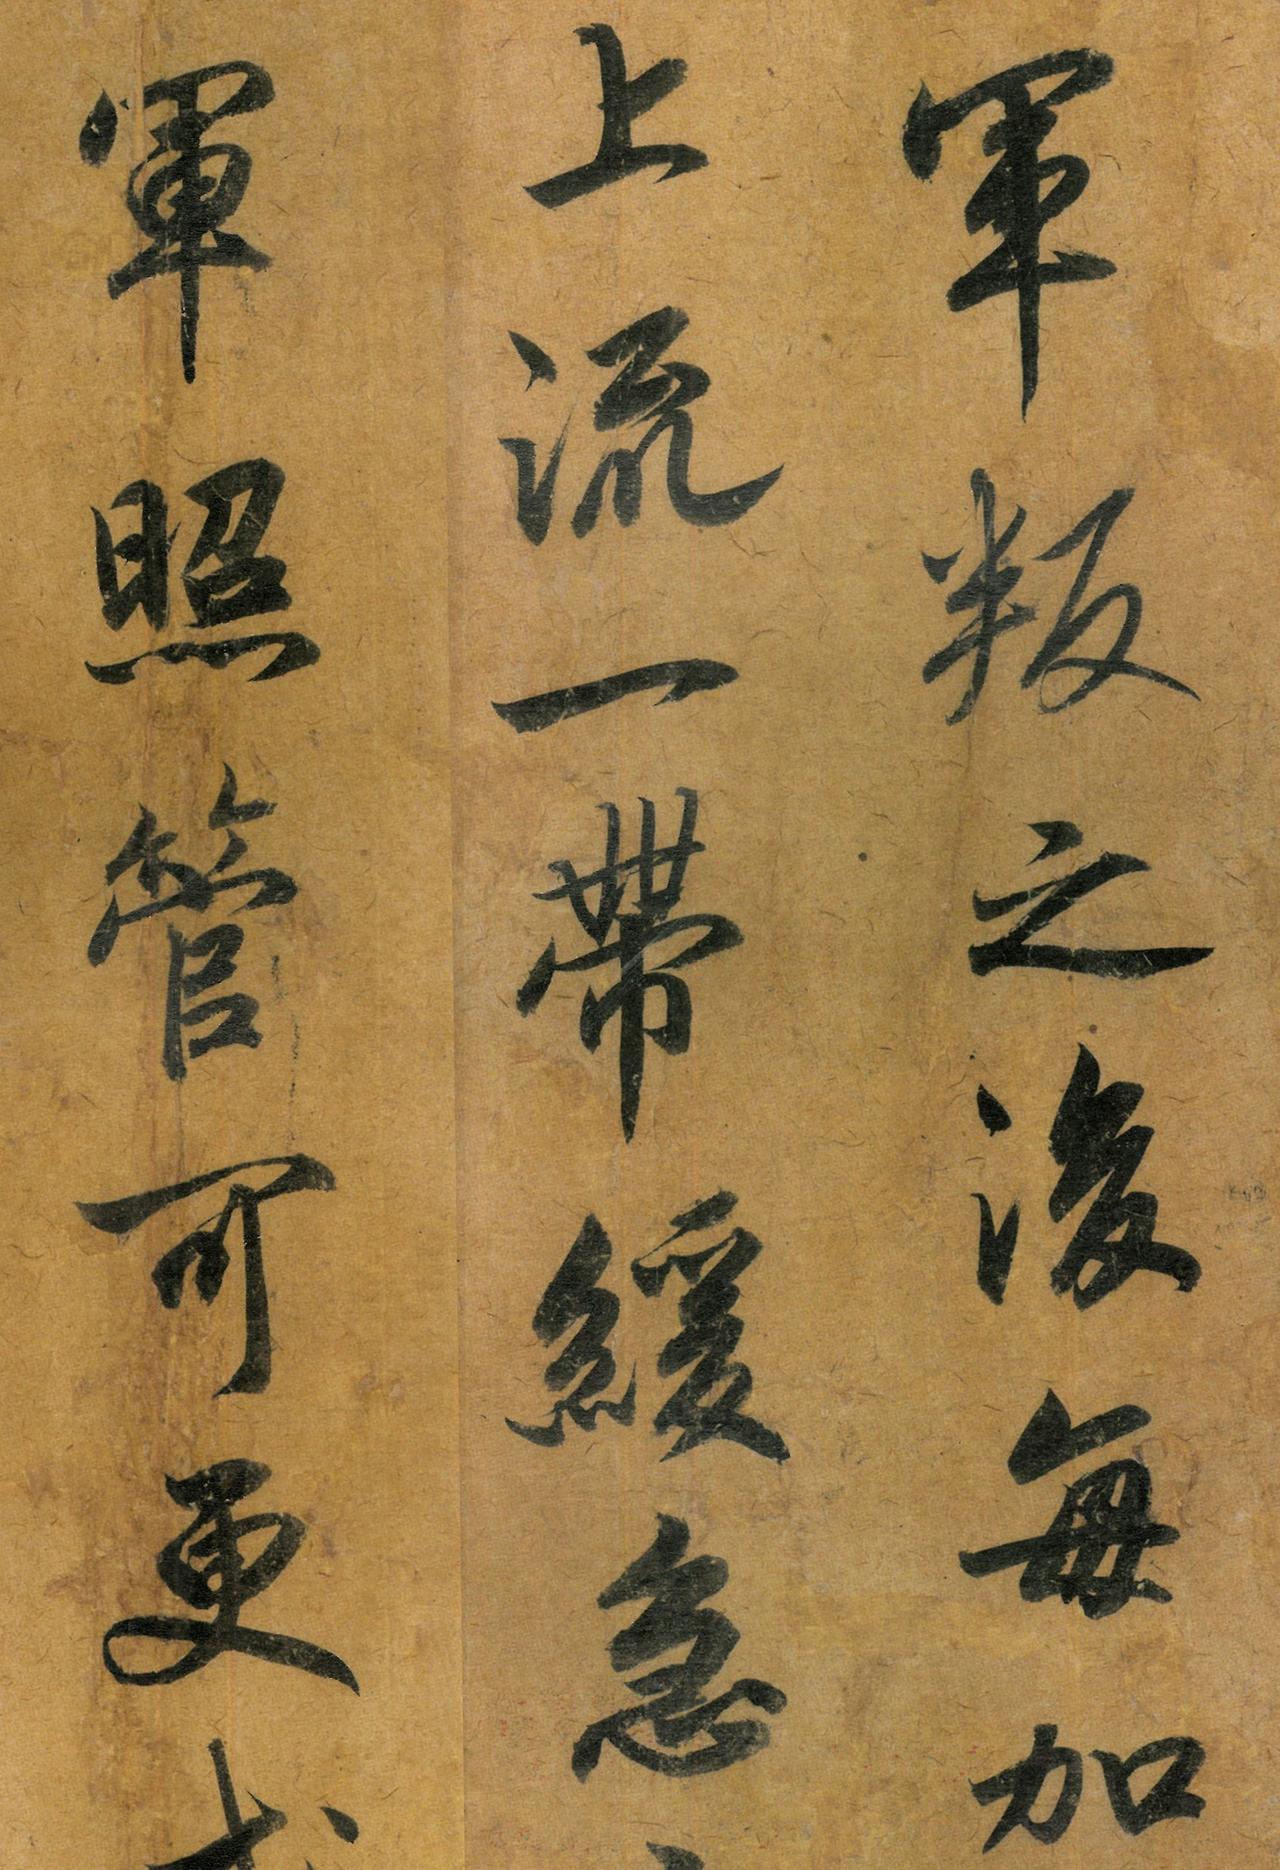 軍叛之後每加
上流一帶緩急
軍照管可更